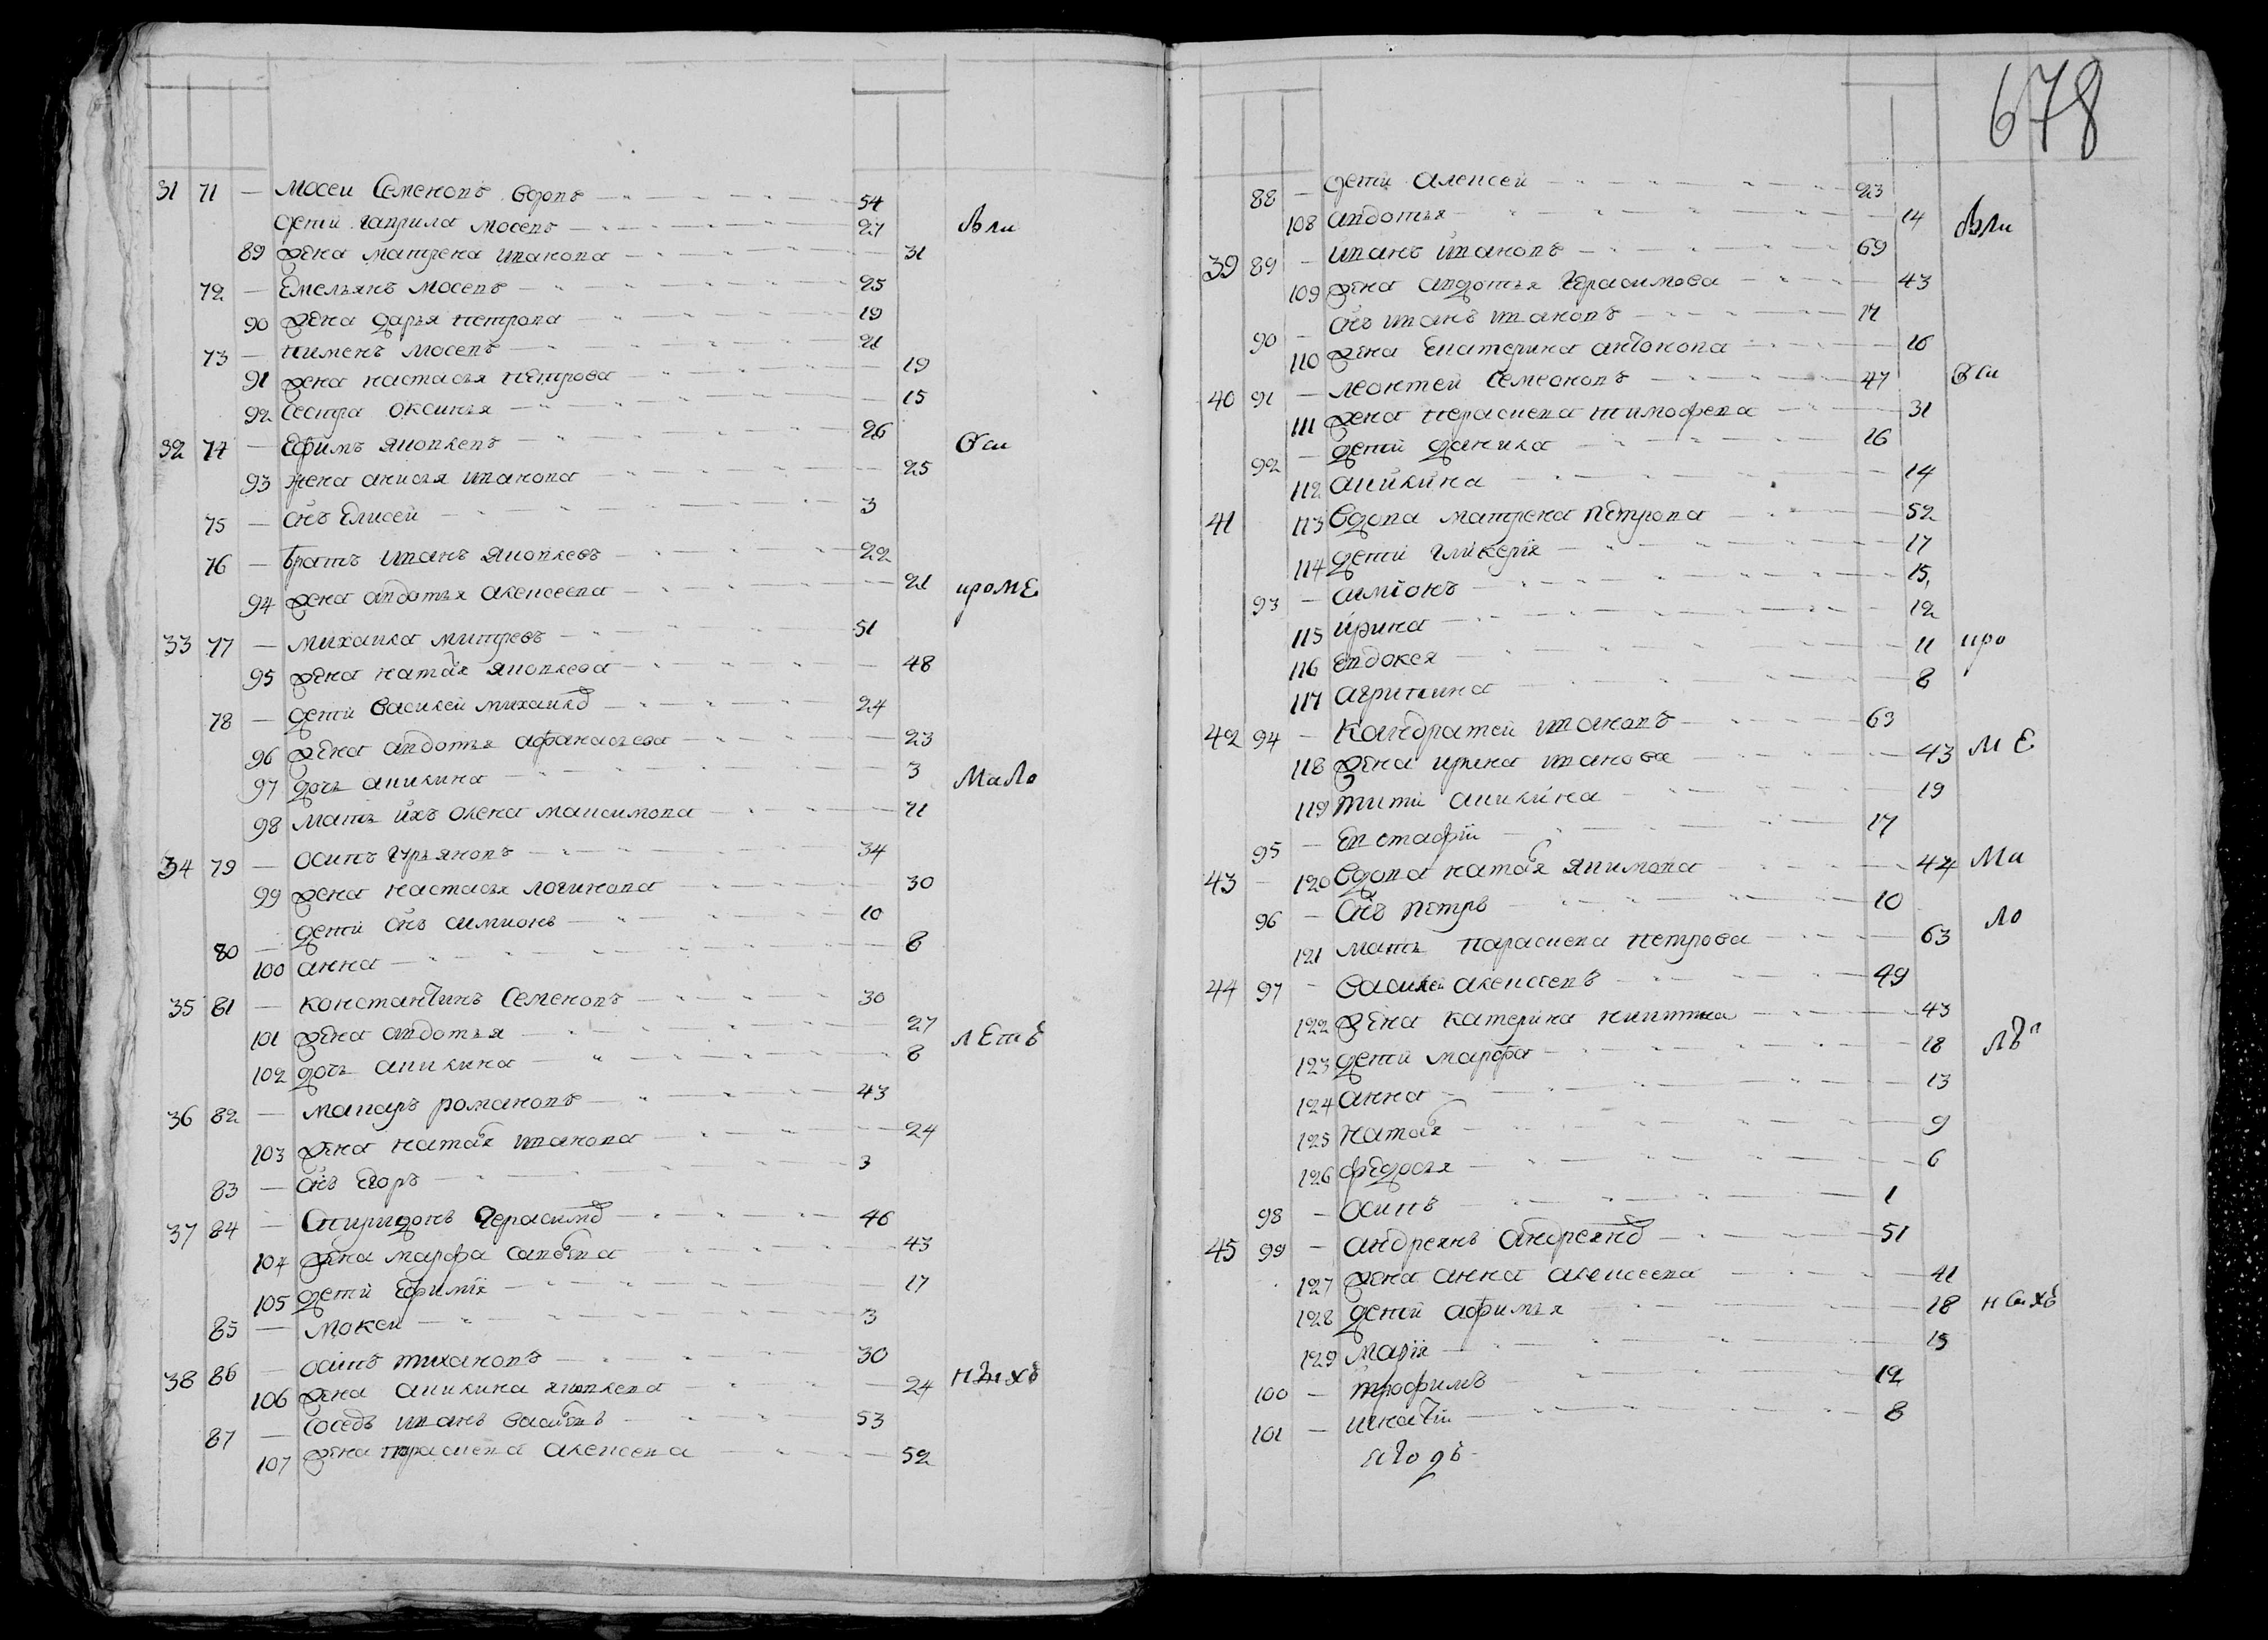 31 71 — Мосеи Семеновъ вдовъ 54
дети гаврила Мосевъ 27 были
89 жена матрена иванова 31
72 — Емельянъ Мосевъ 25
90 жена дарья петрова 19
73 — пименъ Мосевъ 21
91 жена настасья петрова 19
92 сестра оксинья 15
32 74 — Ефимъ яковлевъ 26 вси
93 жена анисья иванова 25
75 — снъ Елисей 3
76 — братъ иванъ яковлевъ 22
94 жена авдотья алексеева 21 кроме
33 77 — михаила митревъ 51
95 жена наталя яковлева 48
78 — дети василеи михаилов 24
96 жена авдотья афанасьева 23
97 дочь акилина 3 мало
98 мать ихъ олена максимова 71
34 79 — осипъ гурьяновъ 34
99 жена настасья логинова 30
80 — дети снъ симионъ 10
100 анна 8
35 81 — константинъ Семеновъ 30
101 жена авдотья 27 летъ
102 дочь акилина 8
36 82 — макаръ романовъ 43
103 жена наталя иванова 24
83 — снъ Егоръ 3
37 84 — Спиридонъ герасимов 46
104 жена марфа савельева 43
105 дети Ефимія 17
85 — мокей 3
38 86 — осипъ тихановъ 30
106 жена акилина яковлева 24 нижхъ
87 — соседъ иванъ васильевъ 53
107 жена параскева алексеева 52
678
88 — дети алексей 23
108 авдотья 14 были
39 89 — иванъ ивановъ 69
109 жена авдотья герасимова 43
90 — снъ иванъ ивановъ 17
110 жена Екатерина антонова 16
40 91 — леонтей Семеоновъ 47 вси
111 жена пераскева тимофева 31
92 — дети данила 16
112 акилина 14
41 113 вдова матрена петрова 52
114 дети гликерія 17
93 — симіонъ 15
115 ирина 12
116 евдокея 11 кро
117 агрипина 8
42 94 — Кандратей ивановъ 63
118 жена ирина иванова 43 ме
119 тити акилина 19
95 — Евстафій 17
43 — 120 вдова наталя якимова 44 ма
96 — снъ петръ 10 ло
121 мать параскева петрова 63
44 97 — василеи алексеевъ 49
122 жена катерина никитина 43
123 дети марфа 18 лѣт
124 анна 13
125 наталя 9
126 федосья 6
98 — осипъ 1
45 99 — андреянъ андреянов 51
127 жена анна алексеева 41
128 дети афимья 18 нижхъ
129 марія 15
100 — трофимъ 12
101 — игнатій 8